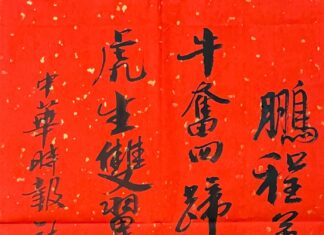 鵬程
牛奮四蹄
虎生雙翼
中華時報社